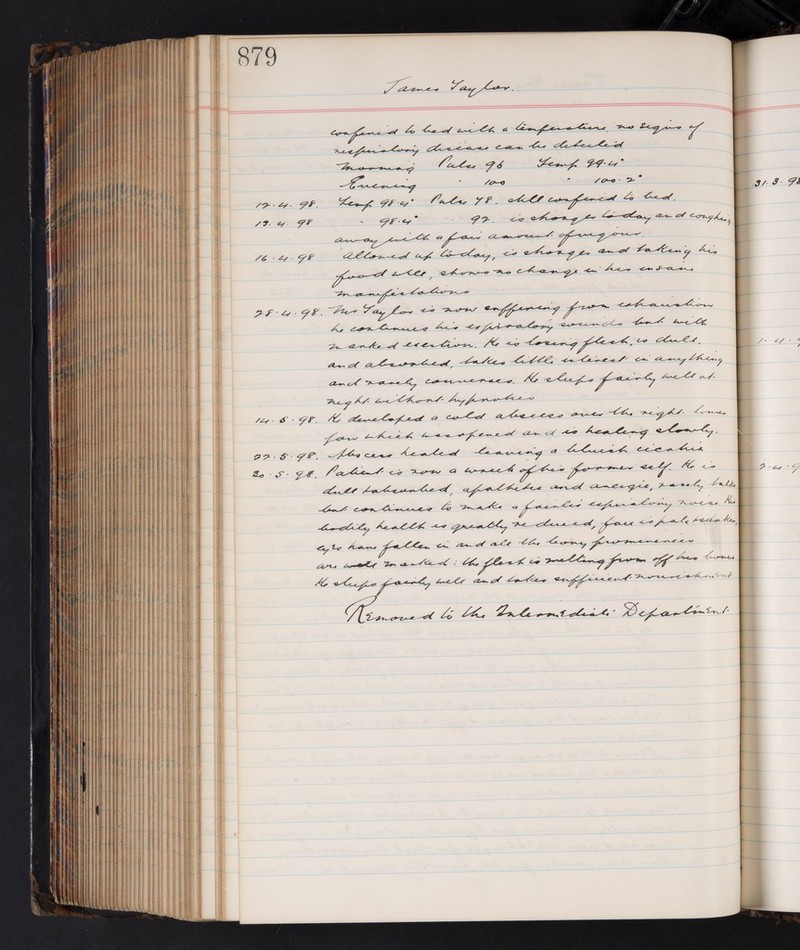 879
James Taylor.
confined to bed with a temperature. no signs of
respiratory disease can be detected
Morning Pulse 96 Temp 99.4°
Evening " 100 " 100.2°
12.4.98. Temp 98.4° Pulse 78. still confined to bed.
13.4.98 " 98.4° " 92 is stronger today and coughing
away with a fair amount of vigour.
16.4.98 Allowed up today, is stronger and taking his
food well, shows no change in his insane
manifestations
28.4.98. Mr Taylor is now suffering from exhaustion
he continues his expiratory sounds but with
marked exertion. He is losing flesh, is dull,
and absorbed, takes little interest in anything
and rarely converses. He sleeps fairly well at
night without hypnotics
14.5.98. He developed a cold abscess over the right lower
jaw which was opened and is healing slowly.
22.5.98. Abscess healed leaving a bluish cicatrix
30.5.98. Patient is now a wreck of his former self. He is
dull & absorbed, apathetic and anergic, rarely talks
but continues to make a fainter expiratory noise. His
bodily health is greatly reduced, face is pale &
eyes have fallen in and all the bony prominences
are well marked: the flesh is melting from off his bones
He sleeps fairly well and takes sufficient nourishment
Removed to the Intermediate Department.
31.3.98